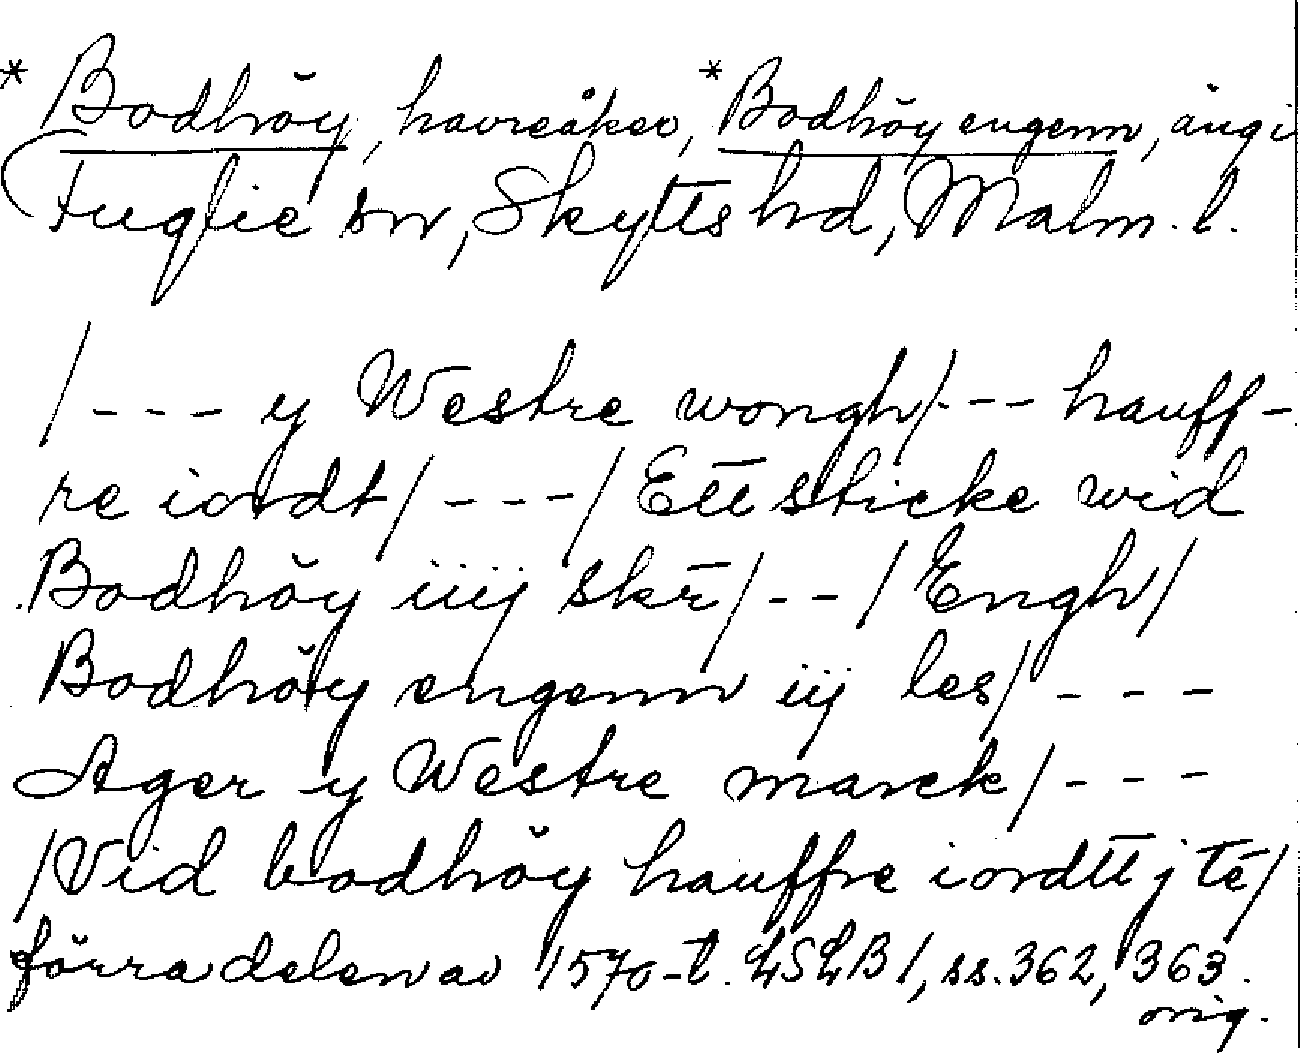 * Bodhöy, havreåker, * Bodhöy engenn, äng i
Fuglie sn, Skytts hd, Malm. l.
/--- y Westre wongh/--- hauff-
re iordt/---/ Ett sticke wid
Bodhöy iiij skr̄/--/ Engh/
Bodhöy engenn iij les/---
Ager y Westre marck/---
/Vid bodhöy hauffre iordtt j té/
förra delen av 1570-t. LSLB 1, ss. 362, 363.
orig.